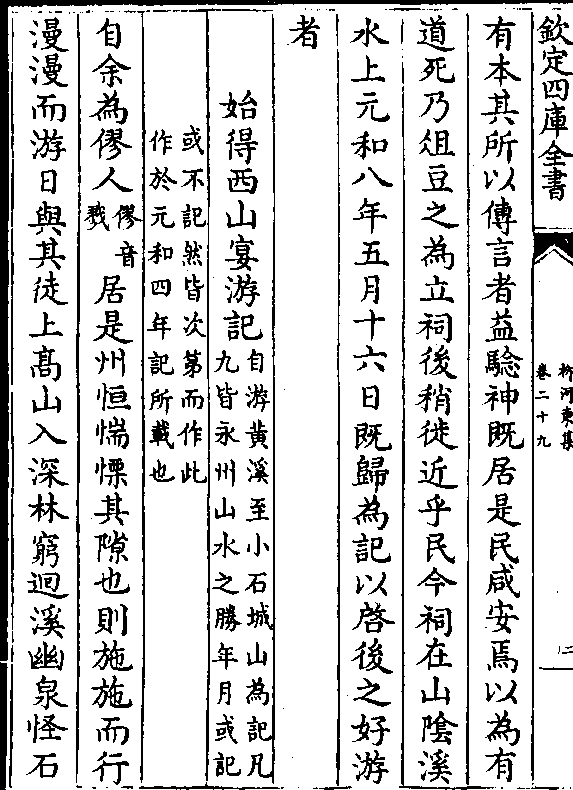 欽定四庫全書
柳河東集
卷二十九
二
有本其所以傳言者益驗神既居是民咸安焉以為有
道死乃俎豆之為立祠後稍徙近乎民今祠在山陰溪
水上元和八年五月十六日既歸為記以啓後之好游
者
始得西山宴游記
自游黃溪至小石城山為記凡
九皆永州山水之勝年月或記
或不記然皆次第而作此
作於元和四年記所載也
自余為僇人
僇音
戮
居是州恒惴慄其隙也則施施而行
漫漫而游日與其徒上高山入深林窮迴溪幽泉怪石